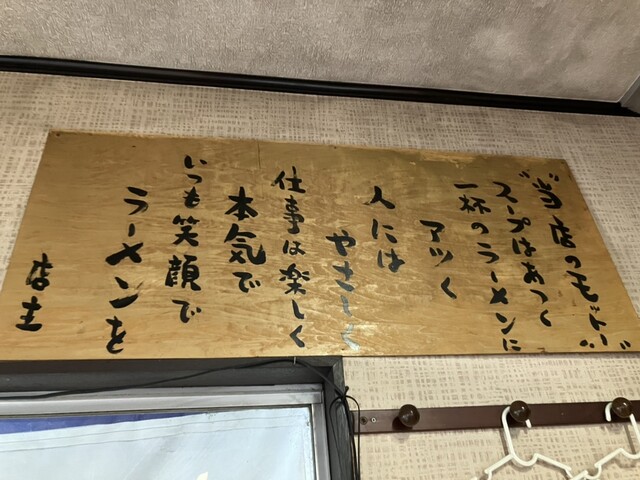 "当店のモットー"
スープはあつく
一杯のラーメンに
アツく
人には
やさしく
仕事は楽しく
本気で
いつも笑顔で
ラーメンを
店主